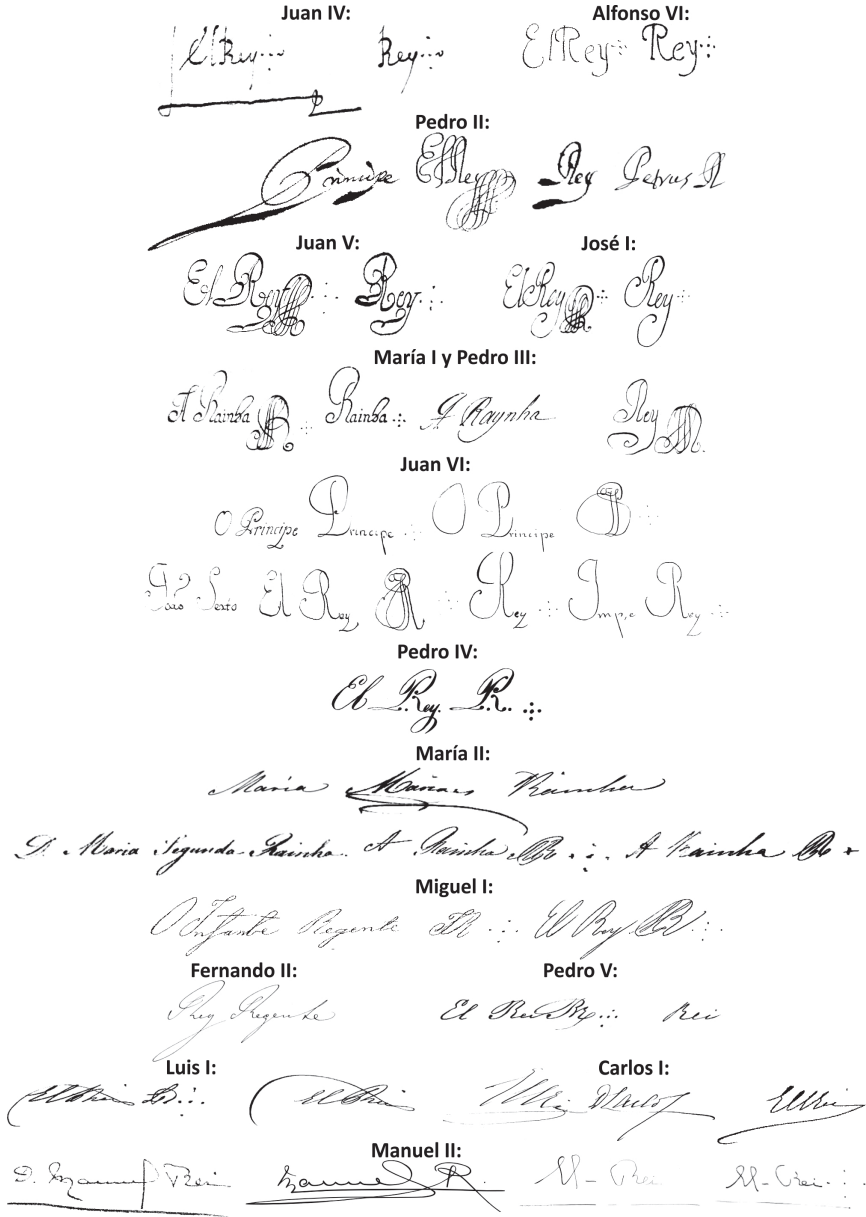 Juan IV: Alfonso VI:
El Rey Rey El Rey Rey
Pedro II:
Principe El Rey Rey Petrus R
Juan V: José I:
El Rey Rey El Rey Rey
María I y Pedro III:
A Rainha Rainha A Raynha Rey
Juan VI:
O Principe Principe O Principe
João Sexto El Rey R Rey Imp.e Rey
Pedro IV:
El Rey. R.
María II:
Maria Rainha
D. Maria Segunda Rainha. A Rainha R A Rainha R
Miguel I:
O Infante Regente IR El Rey R
Fernando II: Pedro V:
Rey Regente El Rei Rei
Luis I: Carlos I:
El Rei El Rei El Rei El Rei
Manuel II:
D. Manuel Rei Manuel R. M- Rei M- Rei